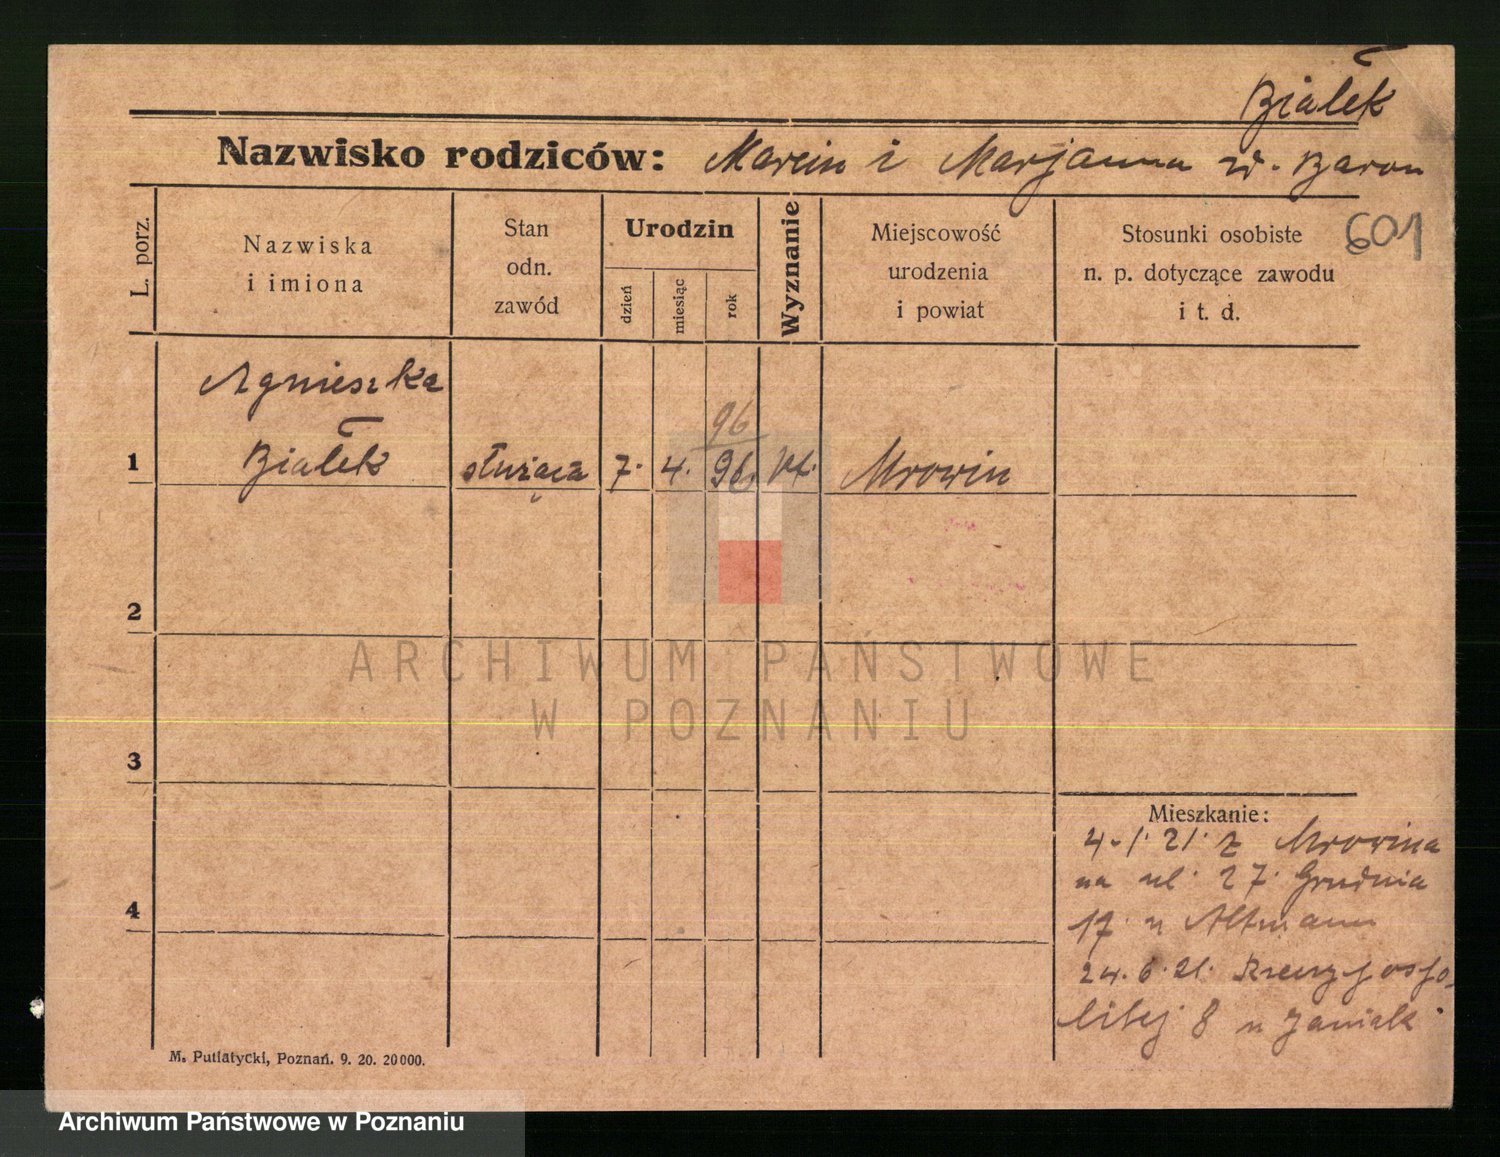 Białek
Nazwisko rodziców: Marcin i Marjanna zd. Baron
601
L. porz.
Nazwiska
i imiona
Stan
odn.
zawód
Urodzin
dzień
miesiąc
rok
Wyznanie
Miejscowość
urodzenia
i powiat
Stosunki osobiste
n. p. dotyczące zawodu
i t. d.
Agnieszka
96
1 Białek służąca 7. 4. 96. kt. Mrowin
2
ARCHIWUM PAŃSTWOWE
W POZNANIU
3
Mieszkanie:
4.1.21. z Mrowina
na ul. 27. Grudnia
4
17. u Altmann
24.6.21. Rzeczypospo-
litej 8 u Janiak
M. Putiatycki, Poznań. 9. 20. 20000.
Archiwum Państwowe w Poznaniu